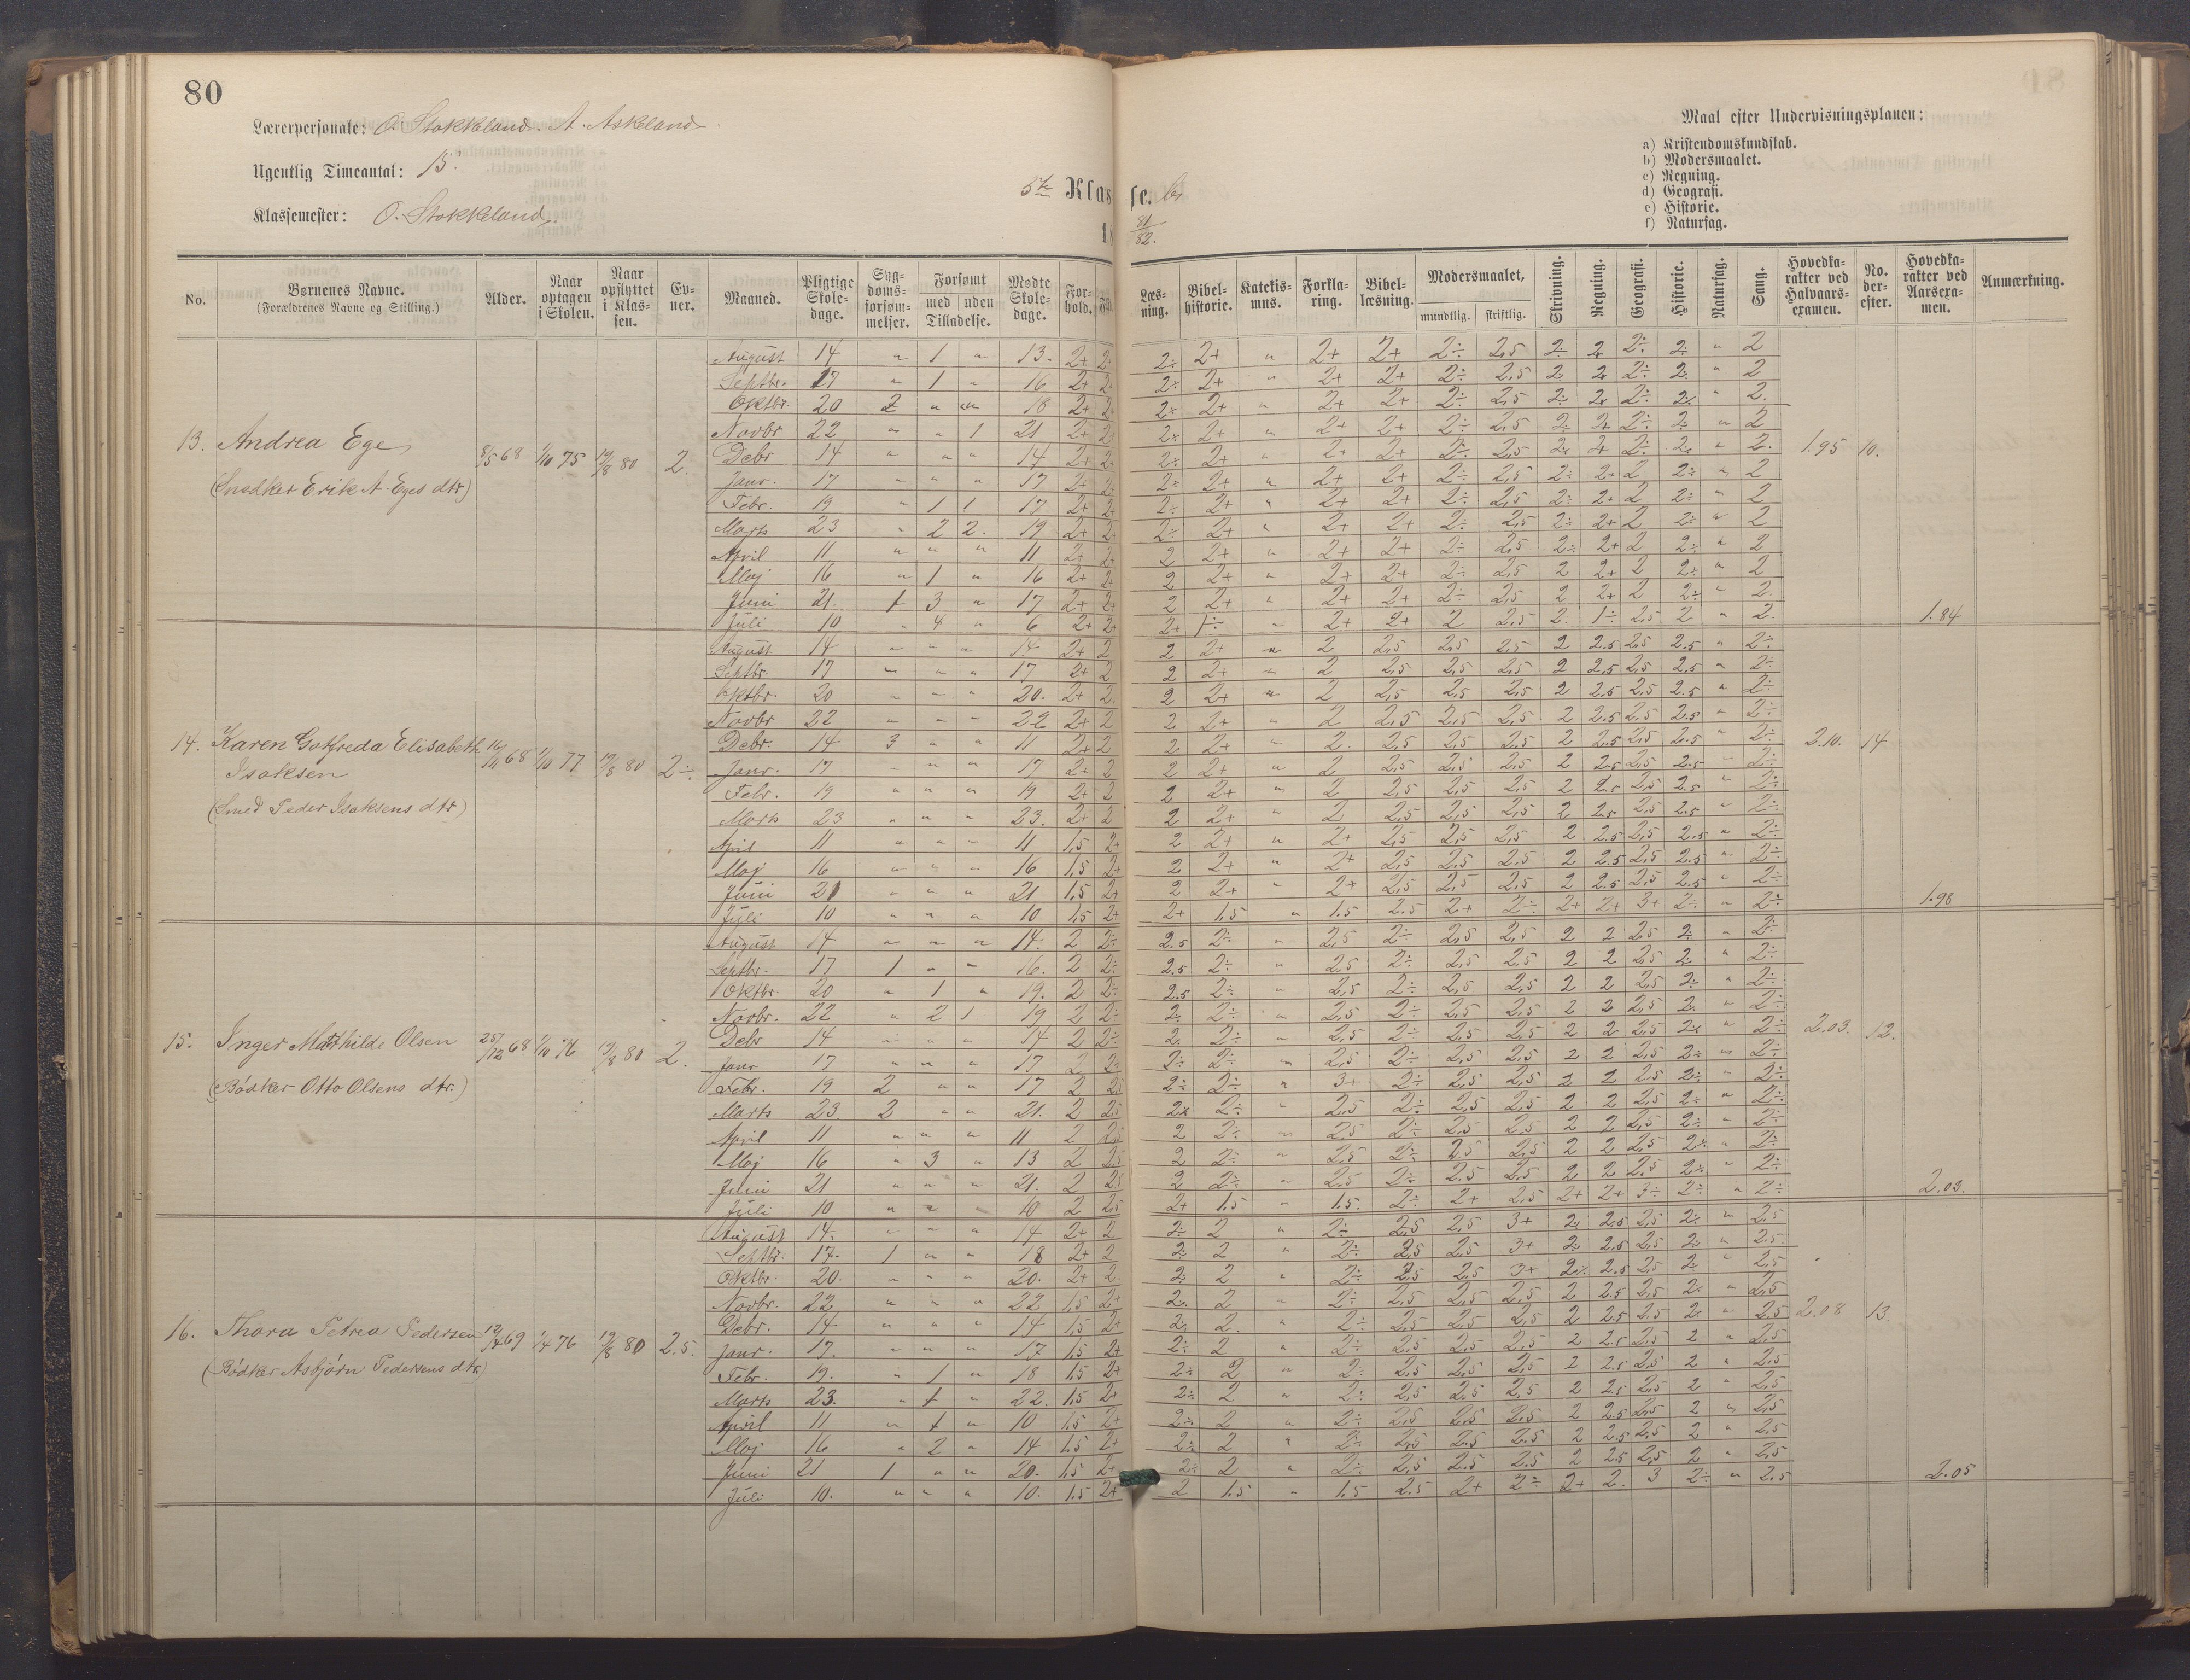 80
Lærerpersonale: O. Stokkeland. A. Askeland
Ugentlig Timeantal:
Klassemester: O. Stokkeland.
5te Klasse. b.
81/82.
Maal efter Undervisningsplanen:
a) Kristendomskundskab.
b) Modersmaalet.
c) Regning.
d) Geografi.
e) Historie.
f) Naturfag.
No. | Børnenes Navne. (Forældrenes Navne og Stilling.) | Alder. | Naar optagen i Skolen. | Naar opflyttet i Klassen. | Evner. | Maaned. | Pligtige Skoledage. | Sygdomsforsømmelser. | Forsømt med uden Tilladelse. | Mødte Skoledage. | Forhold. | Læsning. | Bibelhistorie. | Katekismus. | Forklaring. | Bibellæsning. | Modersmaalet, mundtlig. skriftlig. | Skrivning. | Regning. | Geografi. | Historie. | Naturfag. | Sang. | Hovedkarakter ved Halvaarsexamen. | No. derefter. | Hovedkarakter ved Aarsexamen. | Anmærkning.
13. Andrea Ege 8/5 68 1/10 75 19/8 80 2.
(Snedker Erik A. Eges dtr)
August 14 " 1 " 13. 2+ 2+ 2÷ 2+ " 2+ 2+ 2÷ 2,5 2÷ 2 2÷ 2 " 2
Septbr. 17 " 1 " 16 2+ 2+ 2÷ 2+ " 2+ 2+ 2÷ 2,5 2 2 2÷ 2 " 2
Oktbr. 20 2 " " 18 2+ 2+ 2÷ 2+ " 2+ 2+ 2÷ 2,5 2÷ 2 2÷ 2 " 2.
Novbr 22 " " 1 21 2+ 2+ 2÷ 2+ " 2+ 2+ 2÷ 2,5 2 2 2÷ 2 " 2
Debr 14 " " " 14 2+ 2+ 2÷ 2+ " 2+ 2+ 2÷ 2,5 2 2+ 2÷ 2 " 2. 1.95 10.
Janr. 17 " " " 17 2+ 2+ 2÷ 2+ " 2+ 2+ 2÷ 2,5 2÷ 2+ 2 2÷ " 2
Febr. 19 " 1 1 17 2+ 2+ 2÷ 2+ " 2+ 2+ 2÷ 2,5 2÷ 2+ 2 2÷ " 2
Marts 23 " 2 2. 19 2+ 2+ 2÷ 2+ " 2+ 2+ 2÷ 2,5 2÷ 2+ 2 2÷ " 2
April 11 " " " 11 2+ 2+ 2 2+ " 2+ 2+ 2÷ 2,5 2÷ 2+ 2 2÷ " 2
Maj 16 " 1 " 16 2+ 2+ 2 2+ " 2+ 2+ 2÷ 2,5 2 2+ 2 2÷ " 2
Juni 21. 1 3 " 17 2+ 2+ 2 2+ " 2+ 2+ 2÷ 2,5 2 2+ 2 2÷ " 2.
Juli 10 " 4 " 6 2+ 2+ 2+ 1÷ " 2+ 2+ 2 2,5 2. 1÷ 2,5 2 " 2. 1.84
14. Karen Gotfreda Elisabeth Isaksen 16/11 68 1/10 77 19/8 80 2÷.
(Smed Peder Isaksens dtr)
August 14 " " " 14 2+ 2 2 2+ " 2 2,5 2,5 2,5 2 2.5 2,5 2.5 " 2÷
Septbr. 17 " " " 17 2+ 2 2 2+ " 2 2,5 2,5 2,5 2 2.5 2,5 2.5 " 2÷
Oktbr. 20 " " " 20. 2+ 2 2 2+ " 2 2,5 2,5 2,5 2 2.5 2,5 2.5 " 2÷
Novbr 22 " " " 22 2+ 2 2 2+ " 2 2,5 2,5 2,5 2 2.5 2,5 2.5 " 2÷
Debr. 14 3 " " 11 2+ 2 2 2+ " 2. 2,5 2,5 2,5 2 2.5 2,5 2.5 " 2÷ 2.10. 14
Janr. 17 " " " 17 2+ 2 2 2+ " 2 2,5 2,5 2,5 2 2.5 2,5 2.5 " 2÷
Febr. 19 " " " 19 2+ 2 2 2+ " 2 2,5 2,5 2,5 2 2.5 2,5 2.5 " 2÷
Marts 23 " " " 23. 2+ 2 2 2+ " 2 2,5 2,5 2,5 2 2.5 2,5 2.5 " 2÷
April 11 " " " 11 1,5 2+ 2 2+ " 2+ 2,5 2,5 2,5 2 2.5 2,5 2.5 " 2÷
Maj 16 " " " 16 1,5 2+ 2 2+ " 2+ 2,5 2,5 2,5 2 2.5 2,5 2.5 " 2÷
Juni 21 " " " 21 1,5 2+ 2 2+ " 2+ 2,5 2,5 2,5 2 2.5 2,5 2.5 " 2÷
Juli 10 " " " 10 1,5 2+ 2+ 1.5 " 1.5 2.5 2+ 2÷ 2+ 2+ 3+ 2÷ " 2÷ 1.98
15. Inger Mathilde Olsen 25/12 68 1/10 76 19/8 80 2.
(Bødker Otto Olsens dtr.)
August 14 " " " 14. 2 2÷ 2.5 2÷ " 2,5 2÷ 2,5 2,5 2 2 2,5 2 " 2÷
Septbr. 17 1 " " 16. 2 2÷ 2.5 2÷ " 2,5 2÷ 2,5 2,5 2 2 2,5 2 " 2÷
Oktbr. 20 " 1 " 19. 2 2÷ 2.5 2÷ " 2,5 2÷ 2,5 2,5 2 2 2,5 2 " 2÷
Novbr. 22 " 2 1 19 2 2÷ 2 2÷ " 2,5 2÷ 2,5 2,5 2 2 2,5 2 " 2÷
Debr 14 " " " 14 2 2÷ 2 2÷ " 2,5 2÷ 2,5 2,5 2 2 2,5 2 " 2÷ 2.03. 12.
Janr 17 " " " 17 2 2÷ 2÷ 2÷ " 2,5 2÷ 2,5 2,5 2 2 2,5 2÷ " 2÷
Febr. 19 2 " " 17 2 2,5 2÷ 2÷ " 3+ 2÷ 2,5 2,5 2 2 2,5 2÷ " 2÷
Marts 23. 2 " " 21. 2 2,5 2 2÷ " 2,5 2÷ 2,5 2,5 2 2 2,5 2÷ " 2÷
April 11 " " " 11 2 2,5 2 2÷ " 2,5 2÷ 2,5 2,5 2 2 2,5 2÷ " 2÷
Maj 16 " 3 " 13 2 2,5 2 2÷ " 2,5 2÷ 2,5 2,5 2 2 2,5 2÷ " 2÷
Juni 21 " " " 21. 2 2,5 2 2÷ " 2,5 2÷ 2,5 2,5 2 2 2,5 2÷ " 2÷
Juli 10 " " " 10 2 2,5 2+ 1.5 " 1.5. 2÷ 2+ 2,5 2+ 2+ 3÷ 2÷ " 2÷ 2.03.
16. Thora Petrea Pedersen 12/4 69 1/4 76 19/8 80 2.5.
(Bødker Asbjørn Pedersens dtr)
August 14. " " " 14 2+ 2 2÷ 2 " 2÷ 2,5 2,5 3+ 2 2,5 2,5 2÷ " 2,5
Septbr. 17. 1 " " 18 2+ 2 2 2 " 2÷ 2,5 2,5 3+ 2 2,5 2,5 2 " 2,5
Oktbr. 20. " " " 20. 2+ 2. 2 2 " 2÷ 2,5 2,5 3+ 2÷ 2.5 2,5 2 " 2,5
Novbr. 22 " " " 22 1,5 2+ 2. 2 " 2÷ 2,5 2,5 2,5 2 2.5 2,5 2 " 2,5
Debr. 14 " " " 14 1,5 2+ 2 2. " 2÷ 2,5 2,5 2,5 2 2.5 2,5 2 " 2,5 2.08 13.
Janr. 17. " " " 17 1,5 2+ 2÷ 2 " 2÷ 2,5 2,5 2,5 2 2.5 2,5 2 " 2,5
Febr. 19. " 1 " 18 1,5 2+ 2÷ 2 " 2÷ 2,5 2,5 2,5 2 2.5 2,5 2 " 2,5
Marts 23. " 1 " 22. 1,5 2+ 2÷ 2 " 2÷ 2,5 2,5 2,5 2 2.5 2,5 2 " 2,5
April 11 " 1 " 10 1,5 2+ 2÷ 2 " 2÷ 2,5 2,5 2,5 2 2.5 2,5 2 " 2,5
Maj 16 " 2 " 14 1.5 2+ 2÷ 2 " 2÷ 2,5 2.5 2.5 2 2.5 2,5 2 " 2,5
Juni 21 1 " " 20. 1,5 2+ 2÷ 2 " 2÷ 2,5 2.5 2.5 2 2.5 2,5 2 " 2,5
Juli 10. " " " 10. 1.5 2+ 2 1.5 " 1.5 2.5 2+ 2÷ 2+ 2. 3 2÷ " 2.5 2.05